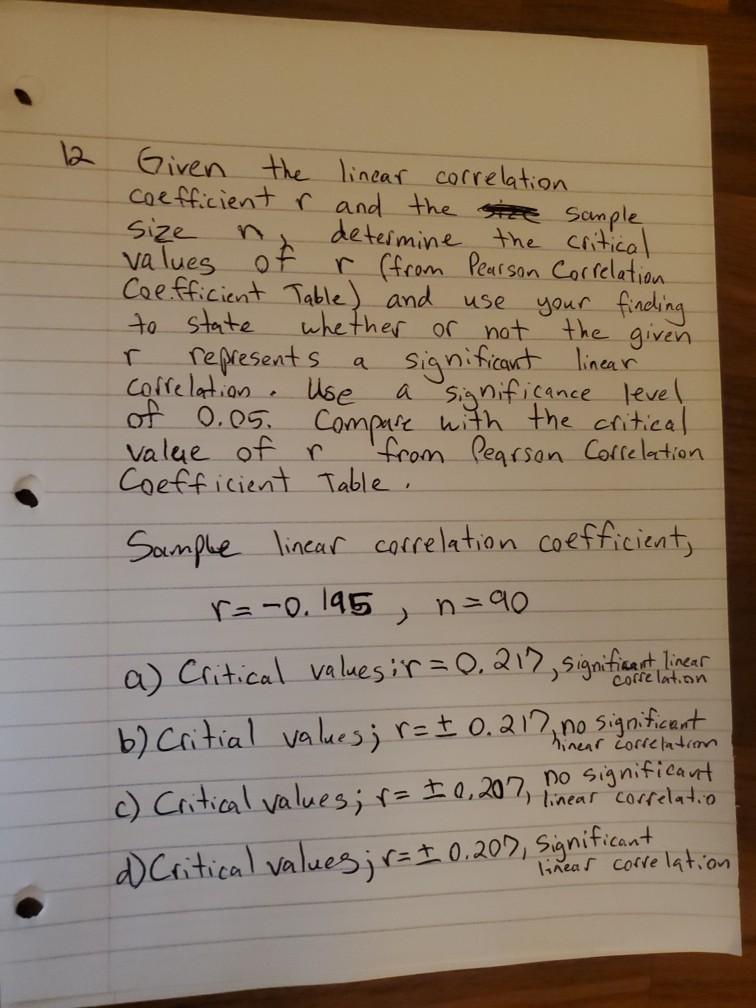 12 Given the linear correlation
coefficient r and the sample
size n, determine the critical
values of r (from Pearson Correlation
Coefficient Table) and use your finding
to state whether or not the given
r represents a significant linear
correlation. Use a significance level
of 0.05. Compare with the critical
value of r from Pearson Correlation
Coefficient Table.
Sample linear correlation coefficient,
r = -0.195, n = 90
a) Critical values; r = 0.217, significant linear
correlation
b) Critial values; r = ± 0.217, no significant
linear correlation
c) Critical values; r = ± 0.207, no significant
linear correlatio
d) Critical values; r = ± 0.207, Significant
linear correlation